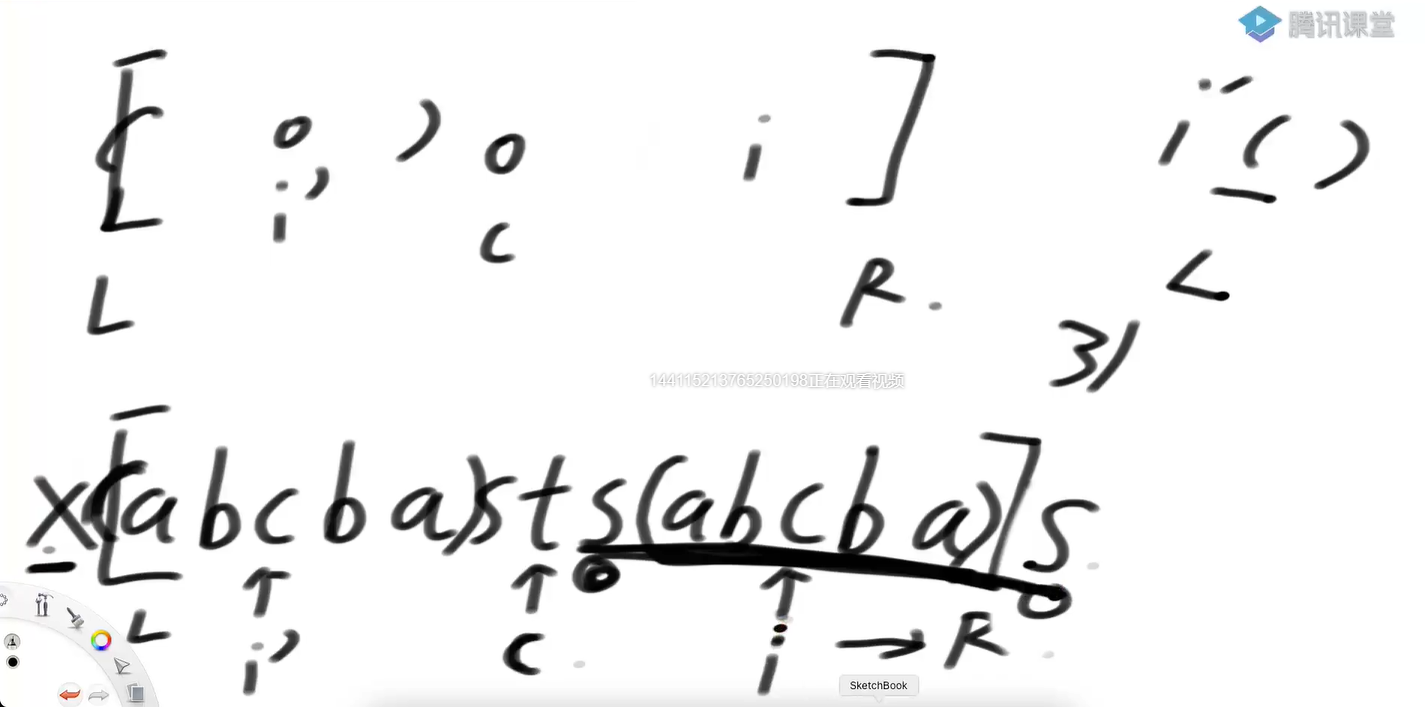 腾讯课堂
[ ( o ) o i ] i' ( )
i' c
L R. L
3)
144115213765250198正在观看视频
x[(abcba)sts(abcba)]s
↑ ↑ ↑
L i' c i → R
SketchBook